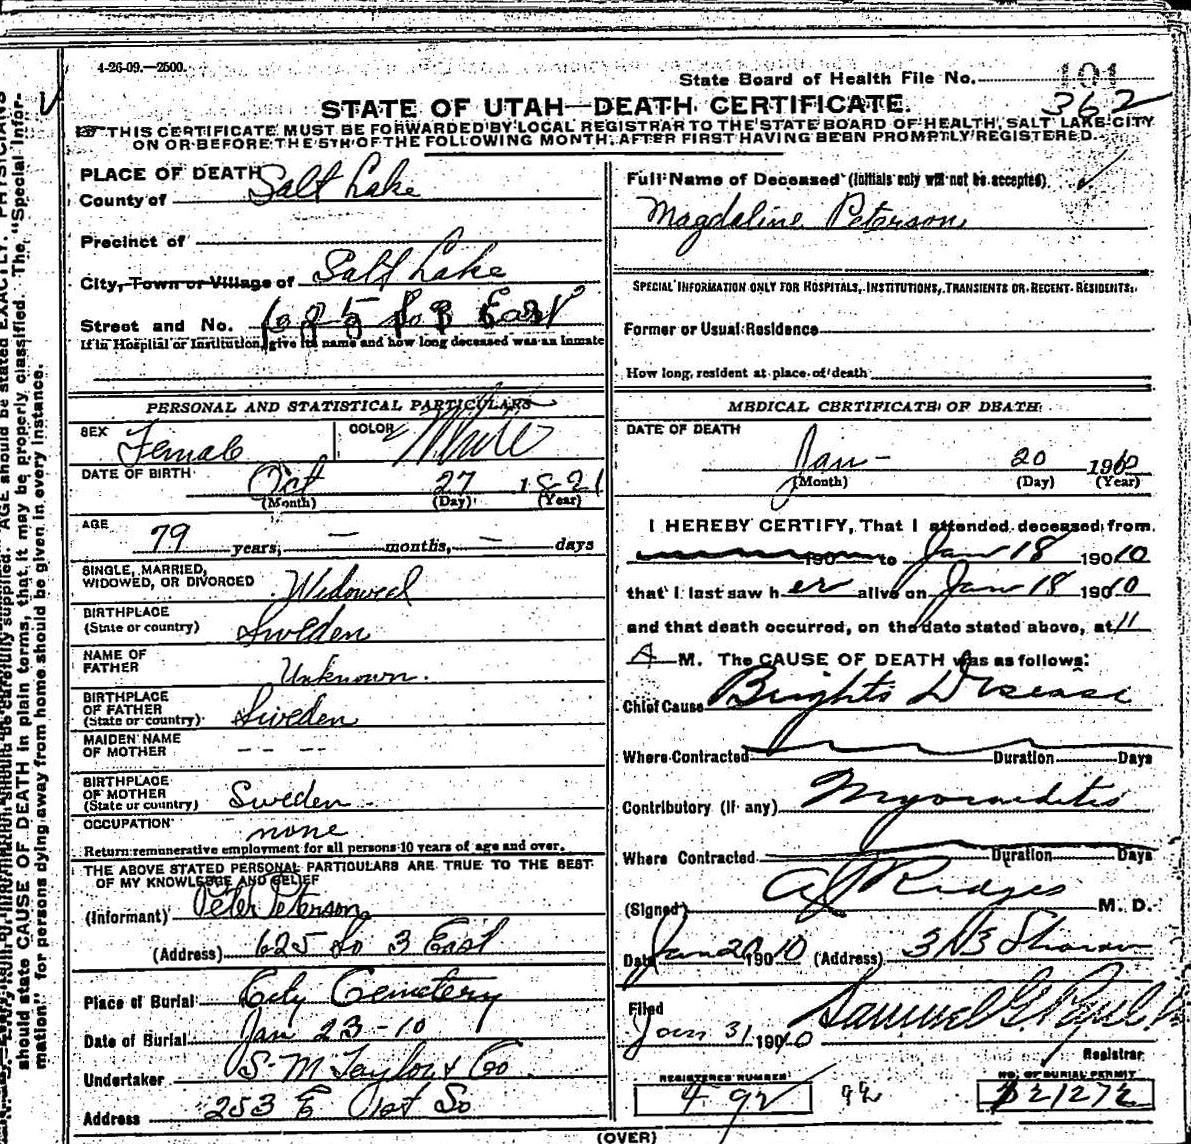 4-26-09.—2500.
State Board of Health File No. 101
362
STATE OF UTAH—DEATH CERTIFICATE.
THIS CERTIFICATE MUST BE FORWARDED BY LOCAL REGISTRAR TO THE STATE BOARD OF HEALTH, SALT LAKE CITY
ON OR BEFORE THE 5TH OF THE FOLLOWING MONTH, AFTER FIRST HAVING BEEN PROMPTLY REGISTERED.
PLACE OF DEATH
County of Salt Lake
Precinct of
City, Town or Village of Salt Lake
Street and No. 625 So 3 East
If in Hospital or Institution, give its name and how long deceased was an Inmate
PERSONAL AND STATISTICAL PARTICULARS
SEX Female COLOR White
DATE OF BIRTH Oct 27 1821
(Month) (Day) (Year)
AGE 79 years, — months, — days
SINGLE, MARRIED,
WIDOWED, OR DIVORCED Widowed
BIRTHPLACE
(State or country) Sweden
NAME OF
FATHER Unknown.
BIRTHPLACE
OF FATHER
(State or country) Sweden
MAIDEN NAME
OF MOTHER -- --
BIRTHPLACE
OF MOTHER
(State or country) Sweden
OCCUPATION none
Return remunerative employment for all persons 10 years of age and over.
THE ABOVE STATED PERSONAL PARTICULARS ARE TRUE TO THE BEST
OF MY KNOWLEDGE AND BELIEF
(Informant) Peter Peterson
(Address) 625 So 3 East
Place of Burial City Cemetery
Date of Burial Jan 23-10
Undertaker S. M. Taylor & Co
Address 253 E 1st So
Full Name of Deceased (Initials only will not be accepted)
Magdaline Peterson
SPECIAL INFORMATION ONLY FOR HOSPITALS, INSTITUTIONS, TRANSIENTS OR RECENT RESIDENTS.
Former or Usual Residence
How long resident at place of death
MEDICAL CERTIFICATE OF DEATH
DATE OF DEATH
Jan- 20 1910
(Month) (Day) (Year)
I HEREBY CERTIFY, That I attended deceased from
190 to Jan 18 19010
that I last saw her alive on Jan 18 19010
and that death occurred, on the date stated above, at 11
A M. The CAUSE OF DEATH was as follows:
Chief Cause Brights Disease
Where Contracted Duration Days
Contributory (if any) Myocarditis
Where Contracted Duration Days
(Signed) Ridges M. D.
Date Jan 20 19010 (Address) 313
Filed
Jan 31 19010 Samuel G. Paul
Registrar
REGISTERED NUMBER
NO. OF BURIAL PERMIT
92
21272
(OVER)
AGE should be stated EXACTLY. PHYSICIANS
should state CAUSE OF DEATH in plain terms, that it may be properly classified. The "Special Infor-
mation" for persons dying away from home should be given in every instance.